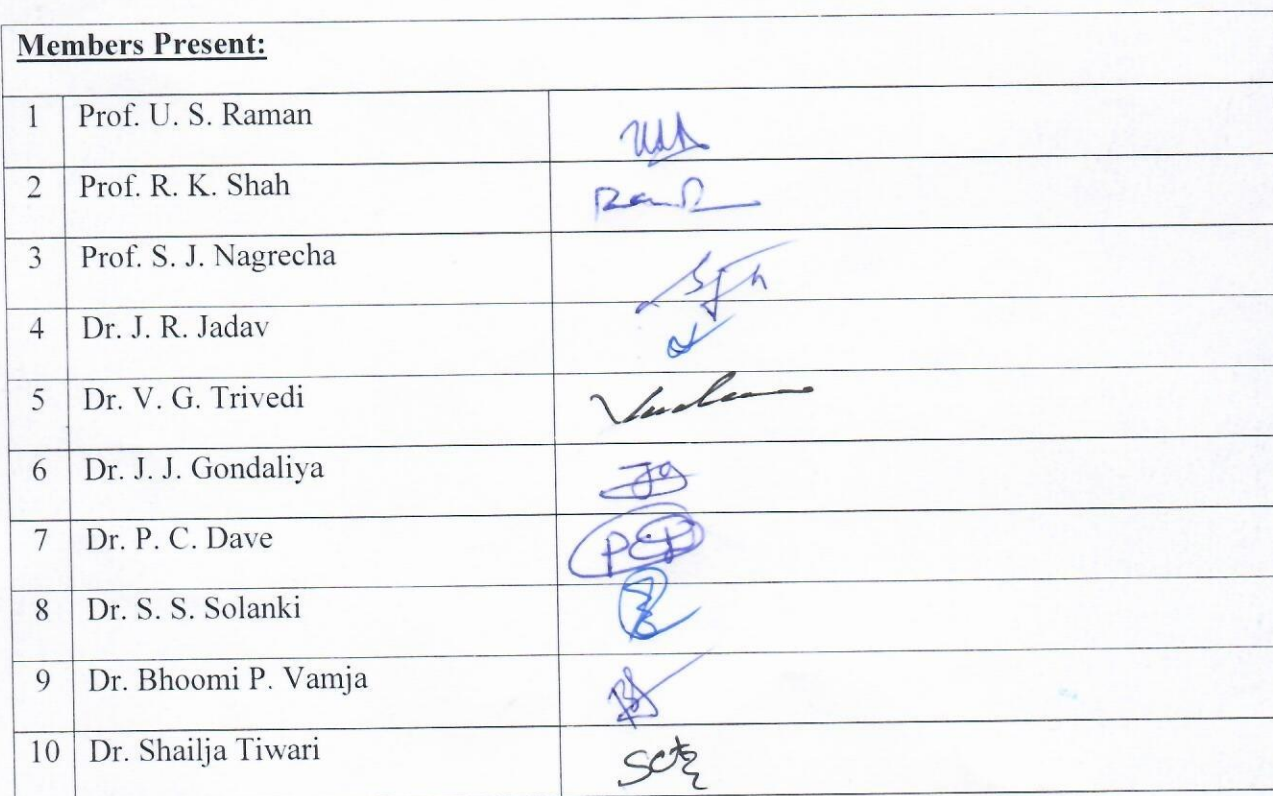 Members Present:
1 Prof. U. S. Raman
2 Prof. R. K. Shah
3 Prof. S. J. Nagrecha
4 Dr. J. R. Jadav
5 Dr. V. G. Trivedi
6 Dr. J. J. Gondaliya
7 Dr. P. C. Dave
8 Dr. S. S. Solanki
9 Dr. Bhoomi P. Vamja
10 Dr. Shailja Tiwari